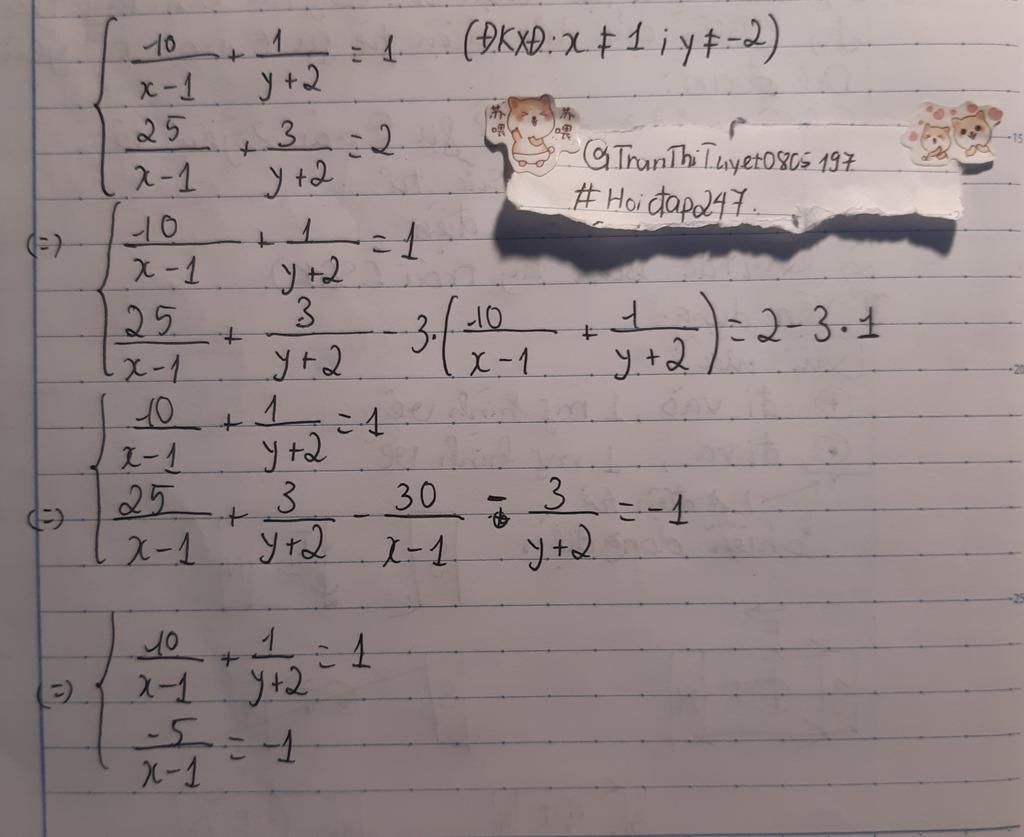 10/(x-1) + 1/(y+2) = 1 (ĐKXĐ: x ≠ 1; y ≠ -2)
25/(x-1) + 3/(y+2) = 2
苏喂 苏喂
@TranThiTuyet0805197
#Hoidap247.
(=) 10/(x-1) + 1/(y+2) = 1
25/(x-1) + 3/(y+2) - 3.(10/(x-1) + 1/(y+2)) = 2 - 3.1
(=) 10/(x-1) + 1/(y+2) = 1
25/(x-1) + 3/(y+2) - 30/(x-1) - 3/(y+2) = -1
(=) 10/(x-1) + 1/(y+2) = 1
-5/(x-1) = -1
15
20
25